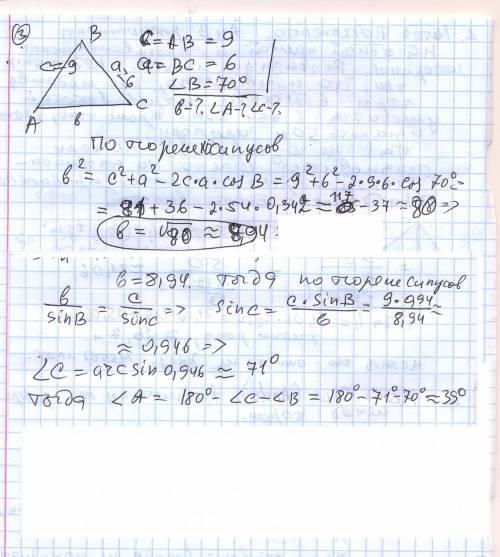 ③
B
c=9
a=6
A
b
C
c = AB = 9
a = BC = 6
∠B = 70°
b-?, ∠A-?, ∠C-?
По теореме косинусов
b² = c² + a² - 2c·a·cos B = 9² + 6² - 2·9·6·cos 70° =
= 81 + 36 - 2·54·0,342 ≈ 117 - 37 ≈ 80 =>
b = √80 ≈ 8,94
b = 8,94. Тогда по теореме синусов
b/sin B = c/sin C => sin C = c·sin B/b = 9·0,94/8,94 ≈
≈ 0,946 =>
∠C = arc sin 0,946 ≈ 71°
Тогда ∠A = 180° - ∠C - ∠B = 180° - 71° - 70° ≈ 39°